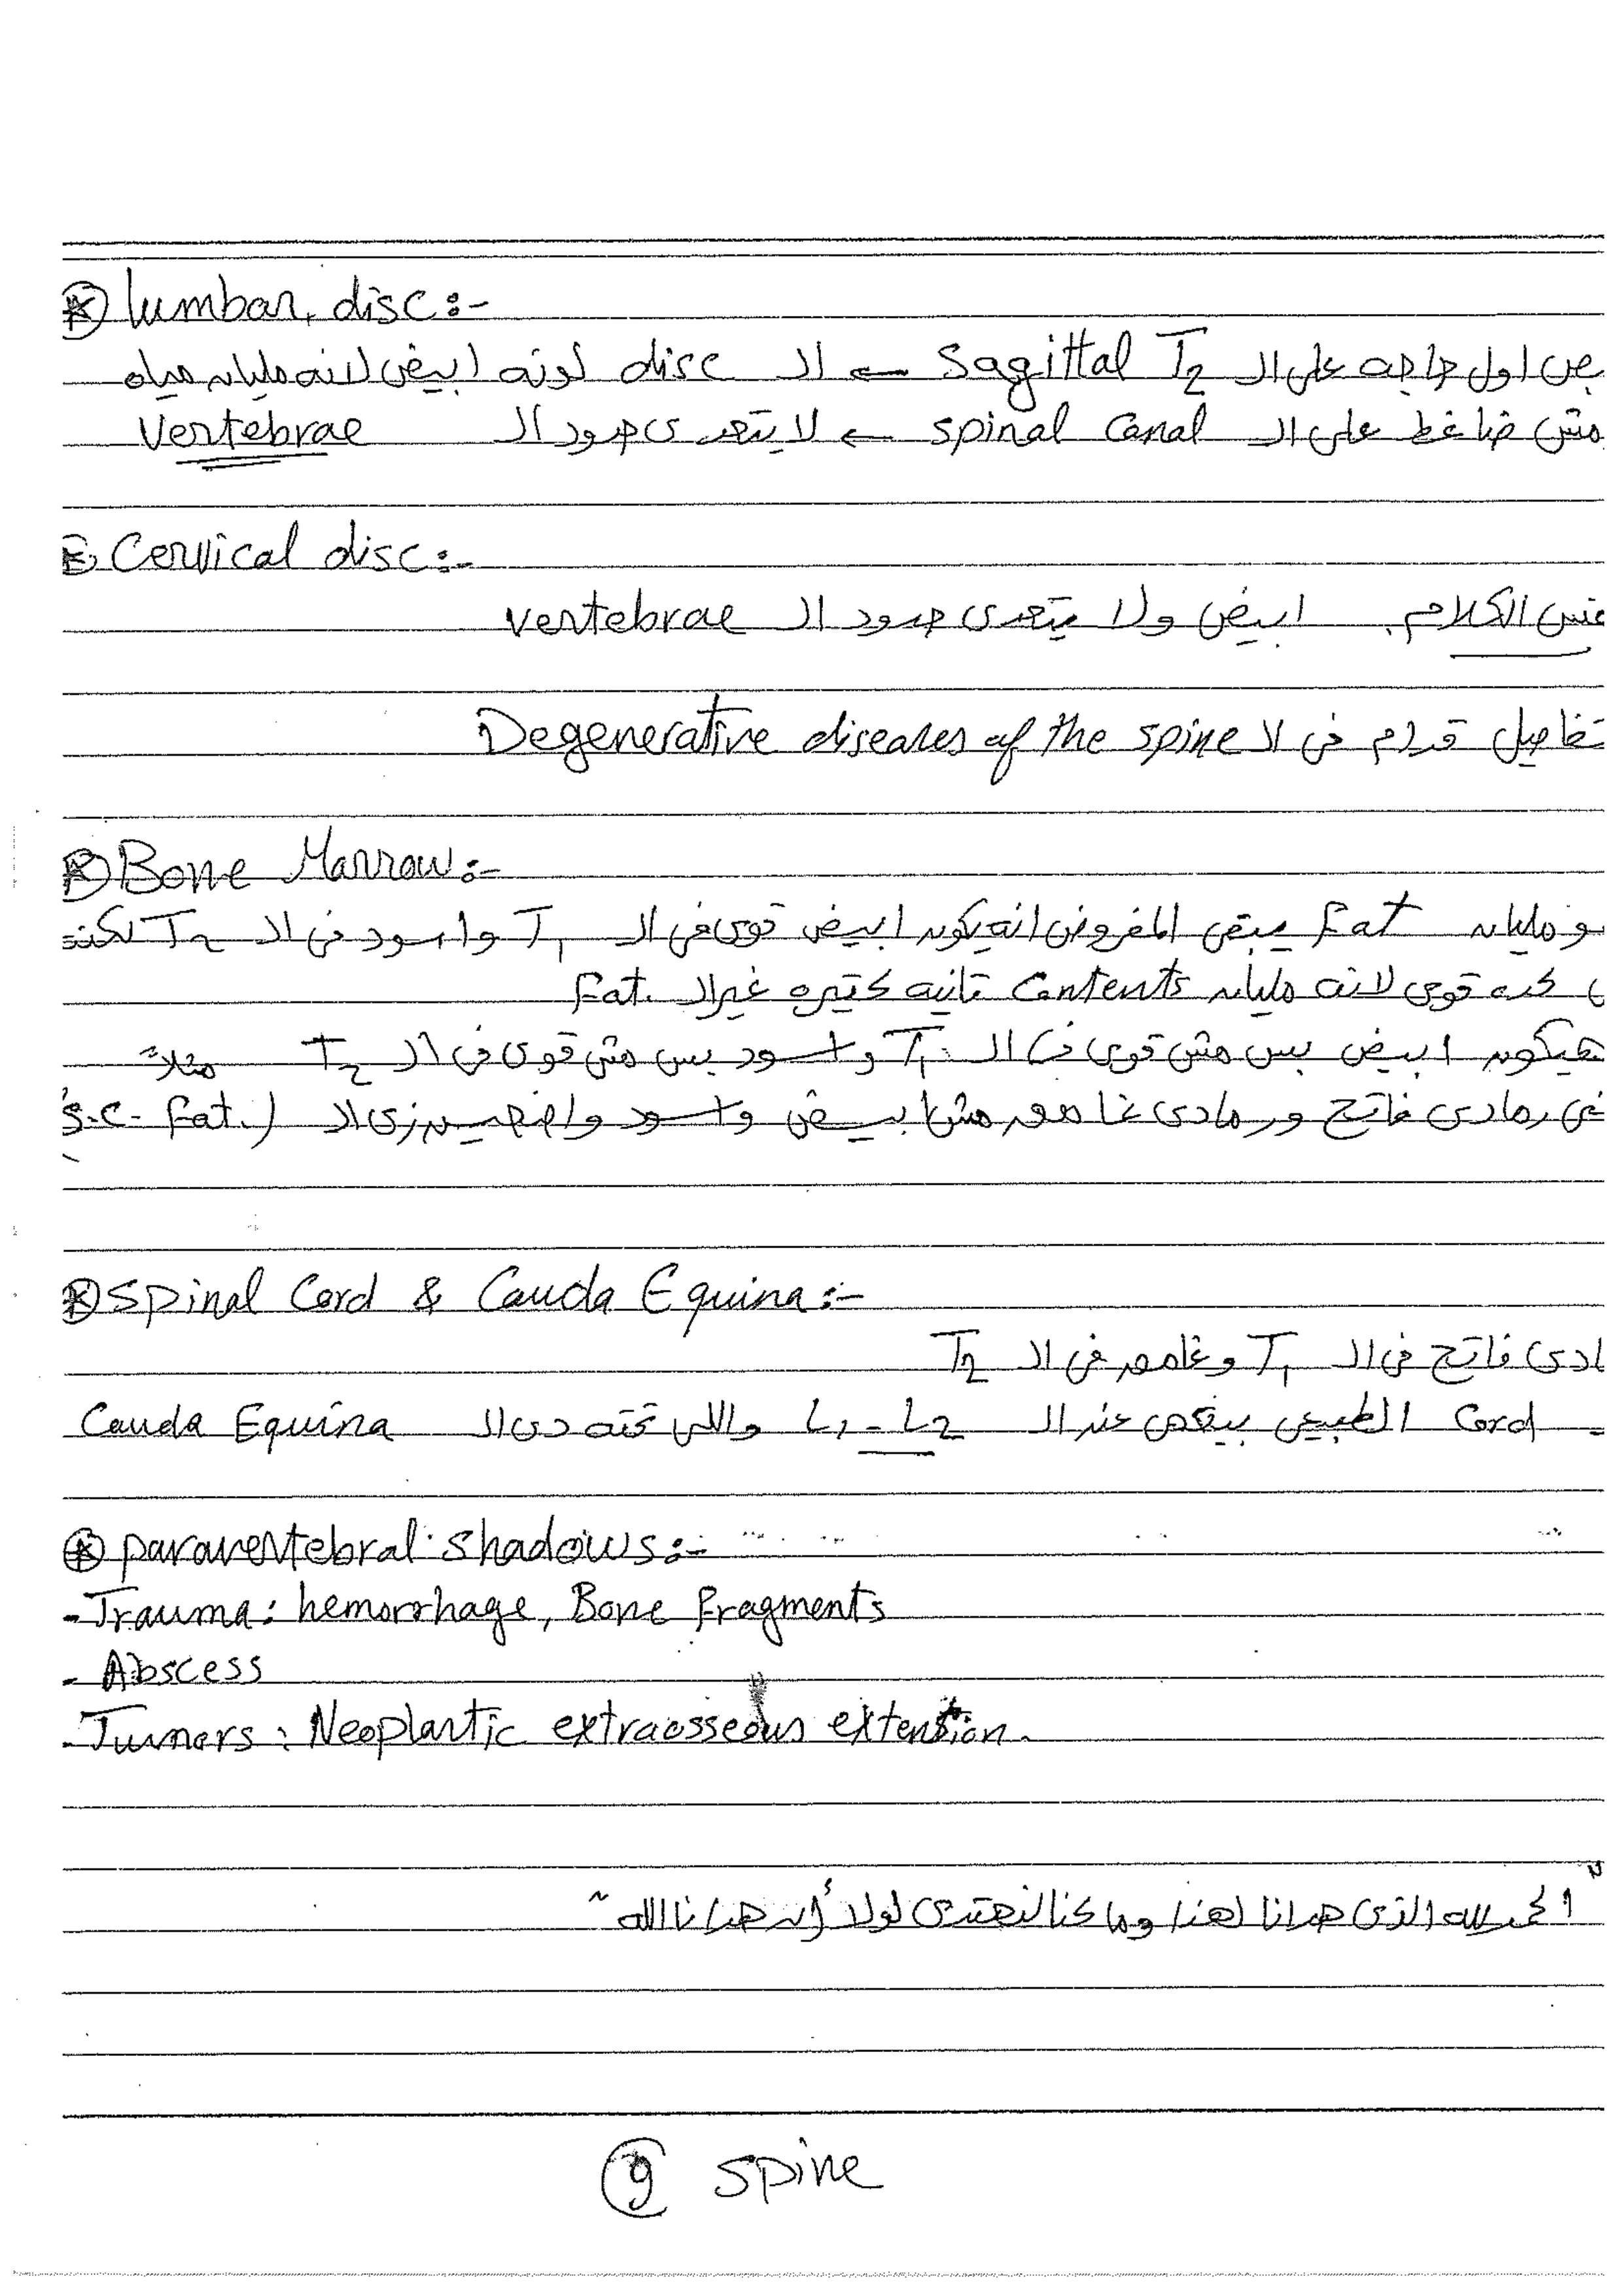 lumbar disc:-
اول حاجه على ال Sagittal T2 ← ال disc لونه ابيض لانه مليان مياه
مش ضاغط على ال spinal canal ← لا يتعدى حدود ال Vertebrae
Cervical disc:-
الكلام. ابيض ولا يتعدى حدود ال vertebrae
تفاصيل قدام فى ال Degenerative diseases of the spine
Bone Marrow:-
و مليان Fat يبقى المفروض انه يكون ابيض قوى فى ال T1 واسود فى ال T2 لكنه
كده قوى لانه مليان Contents تانيه كتيره غير ال Fat.
هيكون ابيض بس مش قوى فى ال T1 واسود بس مش قوى فى ال T2 مثلاً
رمادى فاتح ورمادى غامق مش ابيض واسود واضحين زى ال (S.C. Fat.
Spinal Cord & Cauda Equina:-
فاتح فى ال T1 وغامق فى ال T2
- Cord الطبيعى بيقف عند ال L1-L2 واللى تحته دى ال Cauda Equina
paravertebral shadows:-
- Trauma: hemorrhage, Bone Fragments
- Abscess
- Tumors: Neoplastic extraosseous extension.
"الحمد لله الذى هدانا لهذا وما كنا لنهتدى لولا أن هدانا الله"
9 spine